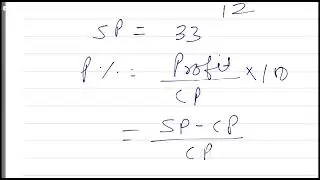 12
SP = 33
P%. = Profit/CP × 100
= SP - CP/CP